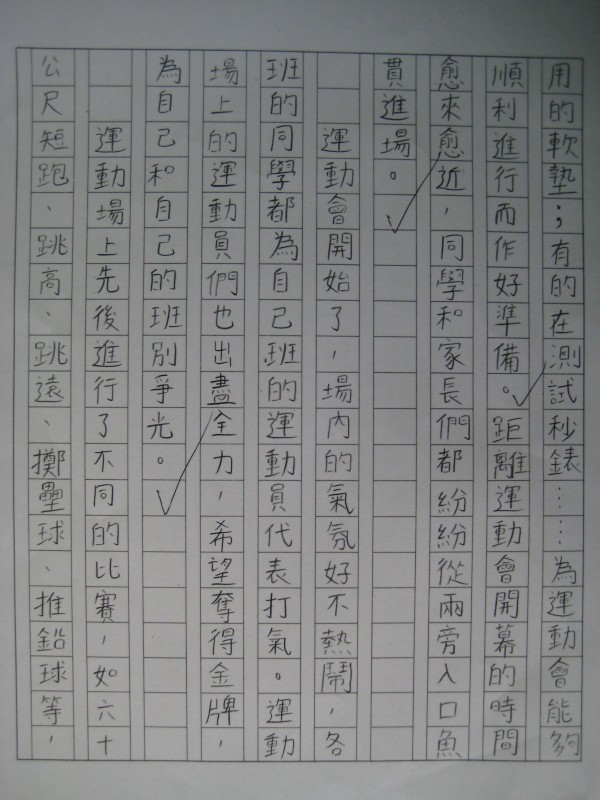 用的軟墊；有的在測試秒錶……為運動會能夠
順利進行而作好準備。距離運動會開幕的時間
愈來愈近，同學和家長們都紛紛從兩旁入口魚
貫進場。
運動會開始了，場內的氣氛好不熱鬧，各
班的同學都為自己班的運動員代表打氣。運動
場上的運動員們也出盡全力，希望奪得金牌，
為自己和自己的班別爭光。
運動場上先後進行了不同的比賽，如六十
公尺短跑、跳高、跳遠、擲壘球、推鉛球等，